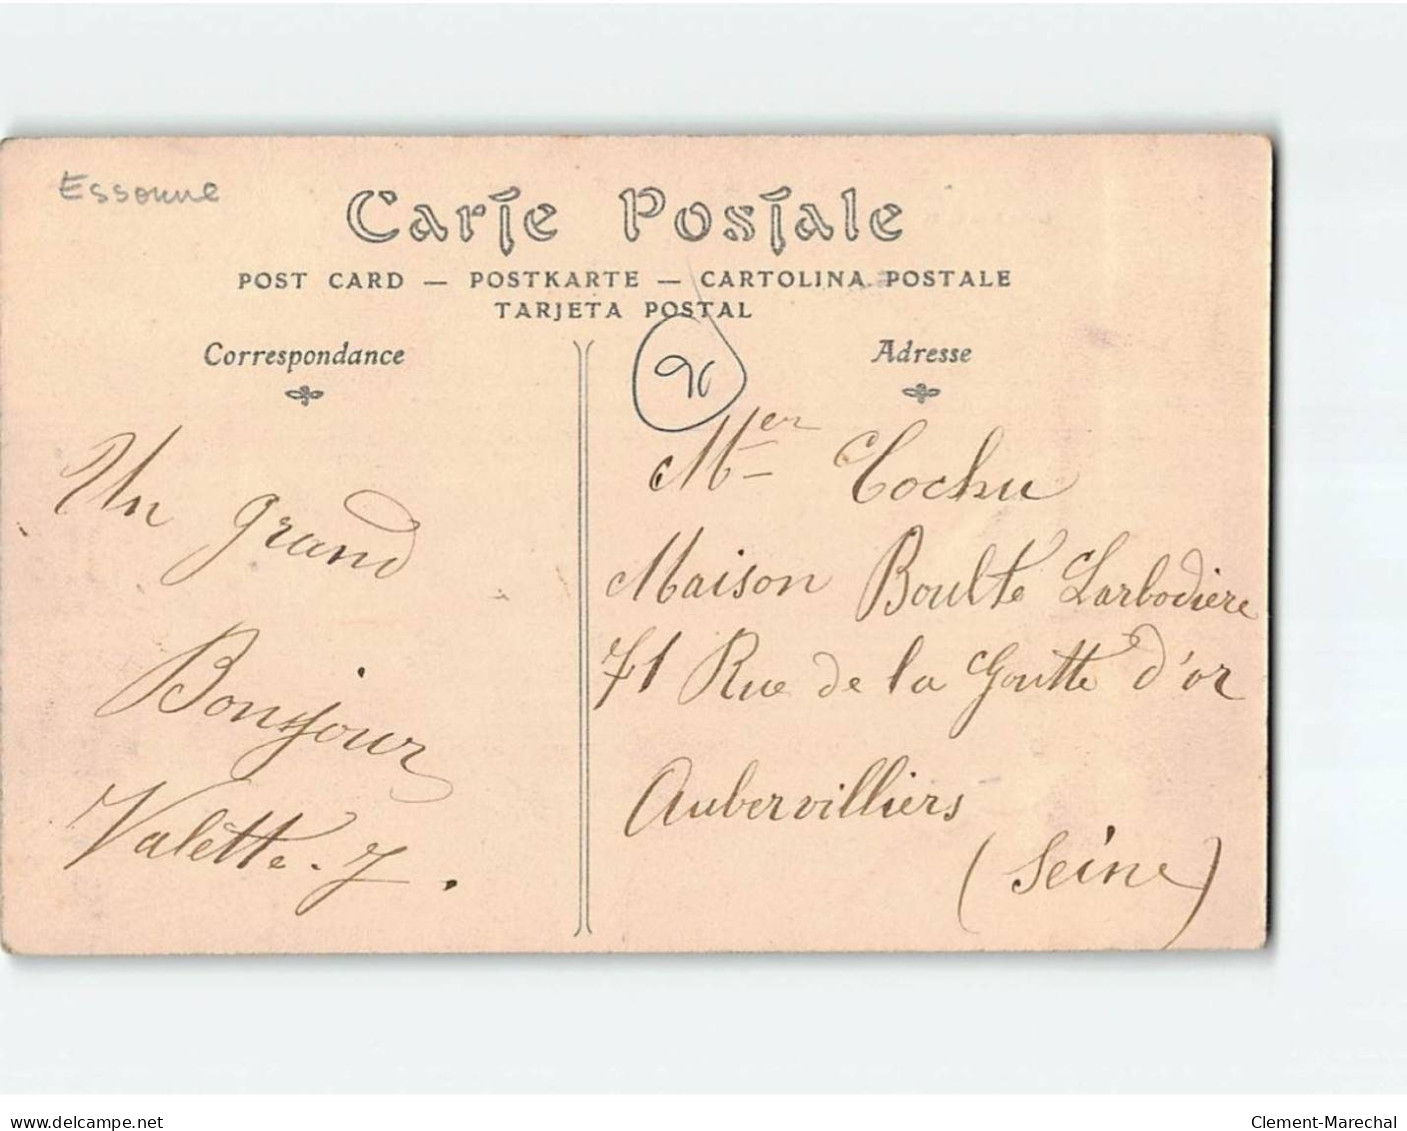 Essonne
Carte Postale
POST CARD — POSTKARTE — CARTOLINA POSTALE
TARJETA POSTAL
Correspondance
Un grand
Bonjour
Valette. J.
Adresse
Mer Cochu
Maison Boulte Larbodiere
71 Rue de la Goutte d'or
Aubervilliers
(Seine)
delcampe.net
Clement-Marechal